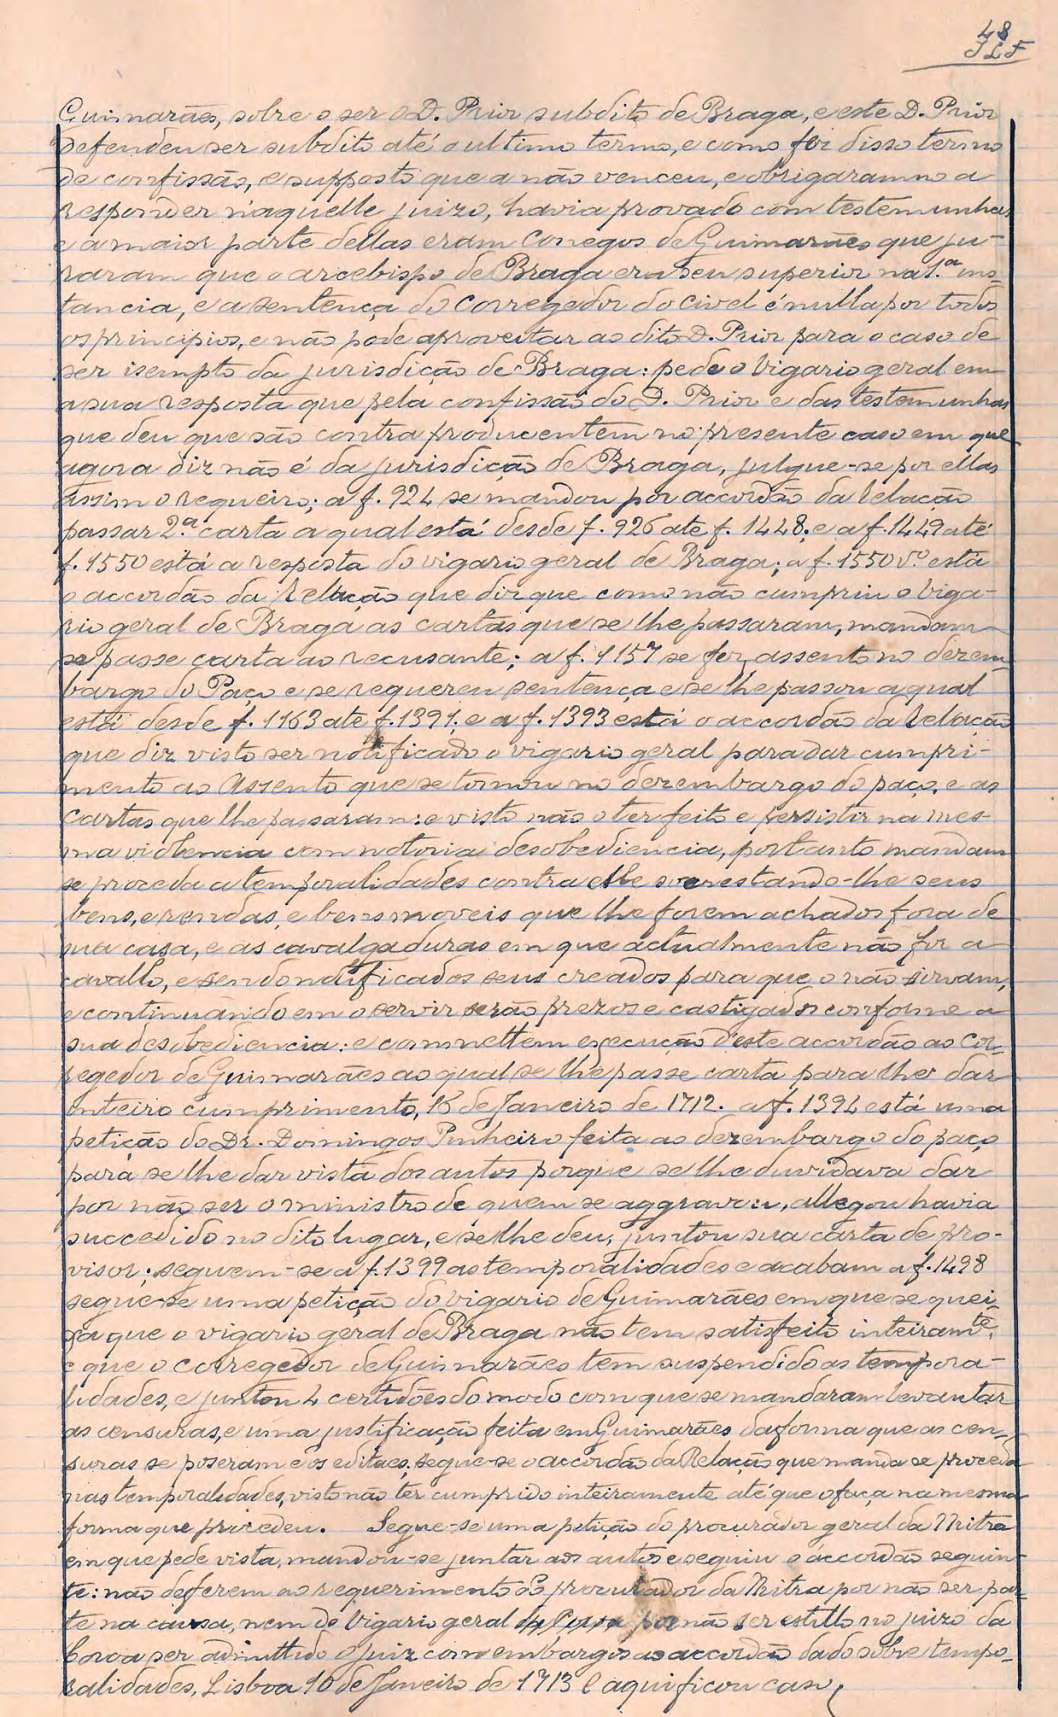 48
JLF
Guimarães, sobre o ser o D. Prior subdito de Braga, e este D. Prior
defendeu ser subdito até o ultimo termo, e como foi disso termo
de confissão, e supposto que a não venceu, e obrigaram-no a
responder n'aquelle juizo, havia provado com testemunhas
e a maior parte dellas eram Conegos de Guimarães que ju-
raram que o arcebispo de Braga era seu superior na 1.ª ins
tancia, e a sentença do Corregedor do civel é nulla por todos
os principios, e não pode aproveitar ao dito D. Prior para o caso de
ser isempto da jurisdição de Braga: pede o Vigario geral em
a sua resposta que pela confissão do D. Prior e das testemunhas
que deu que são contra producentem no presente caso em que
agora diz não é da jurisdição de Braga, julgue-se por ellas
assim o requeiro; a f. 924 se mandou por accordão da Relação
passar 2.ª carta a qual está desde f. 926 até f. 1448, e a f. 1449 até
f. 1550 está a resposta do vigario geral de Braga; a f. 1550 v.º está
o accordão da Relação que diz que como não cumpriu o Viga-
rio geral de Braga as cartas que se lhe passaram, mandam
se passe carta ao recusante; a f. 1157 se fez assento no dezem-
bargo do Paço e se requereu sentença e se lhe passou a qual
está desde f. 1163 até f. 1391, e a f. 1393 está o accordão da Relação
que diz visto ser notificado o vigario geral para dar cumpri-
mento ao Assento que se tomou no dezembargo do paço, e as
Cartas que lhe passaram: e visto não o ter feito e persistir na mes-
ma violencia com notoria desobediencia, portanto mandam
se proceda a temporalidades contra elle socrestando-lhe seus
bens, e rendas, e bens moveis que lhe forem achados fora de
sua casa, e as cavalgaduras em que actualmente não for a
cavallo, e sendo notificados seus creados para que o não sirvam,
e continuando em o servir serão prezos e castigados conforme a
sua desobediencia: e commettem execução d'este accordão ao Cor-
regedor de Guimarães ao qual se lhe passe carta para lhe dar
inteiro cumprimento, 18 de Janeiro de 1712. a f. 1394 está uma
petição do Dr. Domingos Pinheiro feita ao dezembargo do paço
para se lhe dar vista dos autos porque se lhe duvidava dar
por não ser o ministro de quem se aggravou, allegou havia
succedido no dito lugar, e se lhe deu, juntou sua carta de pro-
visor; seguem-se a f. 1399 as temporalidades e acabam a f. 1498
segue-se uma petição do vigario de Guimarães em que se quei-
xa que o vigario geral de Braga não tem satisfeito inteiram.te,
e que o corregedor de Guimarães tem suspendido as tempora-
lidades, e juntou 4 certidões do modo com que se mandaram levantar
as censuras, e uma justificação feita em Guimarães, da forma que as cen-
suras se poseram e os editaes, segue-se o accordão da Relação que manda se proceda
nas temporalidades, visto não ter cumprido inteiramente até que o faça na mesma
forma que procedeu. Segue-se uma petição do procurador geral da Mitra
em que pede vista, mandou-se juntar aos autos e seguiu o accordão seguin-
te: não deferem ao requerimento do procurador da Mitra por não ser par
te na causa, nem do Vigario geral por não ser estillo no juizo da
Coroa ser admittido o Juiz com embargos ao accordão dado sobre tempo-
ralidades, Lisboa 10 de Janeiro de 1713 e aqui ficou caso,